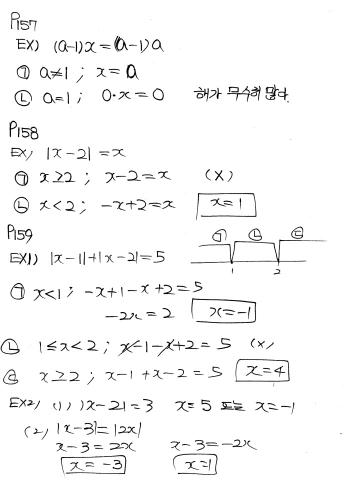 P157
EX) (a-1)x=(a-1)a
㉠ a≠1 ; x=a
㉡ a=1 ; 0·x=0 해가 무수히 많다.
P158
EX) |x-2|=x
㉠ x≥2 ; x-2=x (X)
㉡ x<2 ; -x+2=x x=1
P159
㉠ ㉡ ㉢
1 2
EX1) |x-1|+|x-2|=5
㉠ x<1 ; -x+1-x+2=5
-2x=2 x=-1
㉡ 1≤x<2 ; x-1-x+2=5 (X)
㉢ x≥2 ; x-1+x-2=5 x=4
EX2) (1) |x-2|=3 x=5 또는 x=-1
(2) |x-3|=|2x|
x-3=2x x-3=-2x
x=-3 x=1